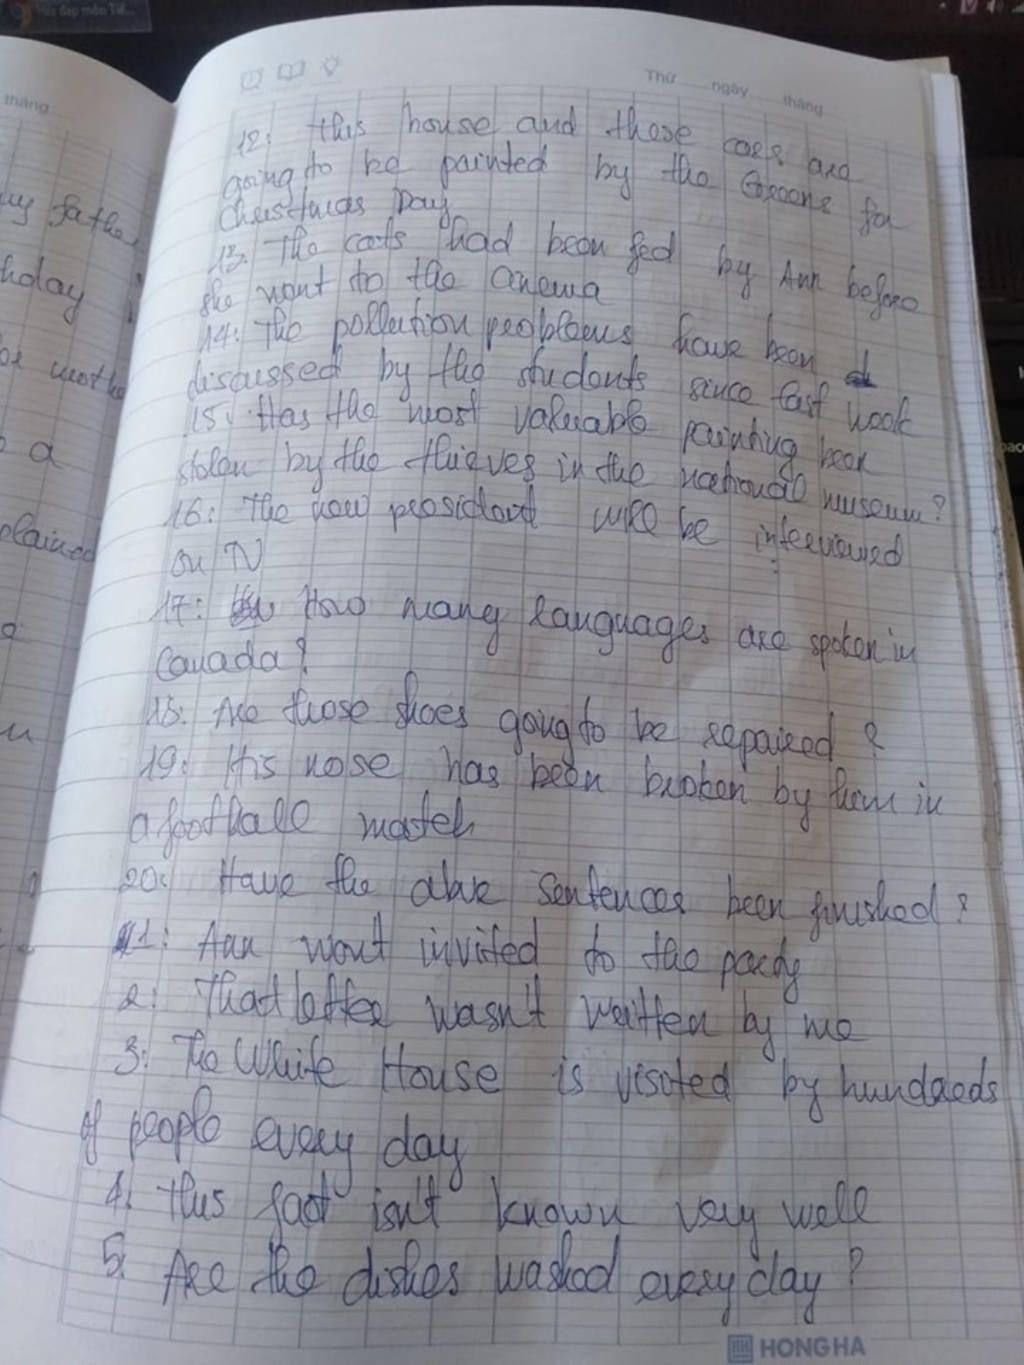 Thứ ngày tháng
tháng
12: This house and these cars are
going to be painted by the Greens for
Christmas Day
13: The cats had been fed by Ann before
she went to the cinema
14: The pollution problems have been
discussed by the students since last week
15: Has the most valuable painting been
stolen by the thieves in the national museum?
16: The new president will be interviewed
on TV
17: How many languages are spoken in
Canada?
18: Are those shoes going to be repaired?
19: His nose has been broken by them in
a football match
20: Have the above sentences been finished?
1: Ann won't invited to the party
2: That letter wasn't written by me
3: The White House is visited by hundreds
of people every day
4: This fact isn't known very well
5: Are the dishes washed every day?
HONG HA